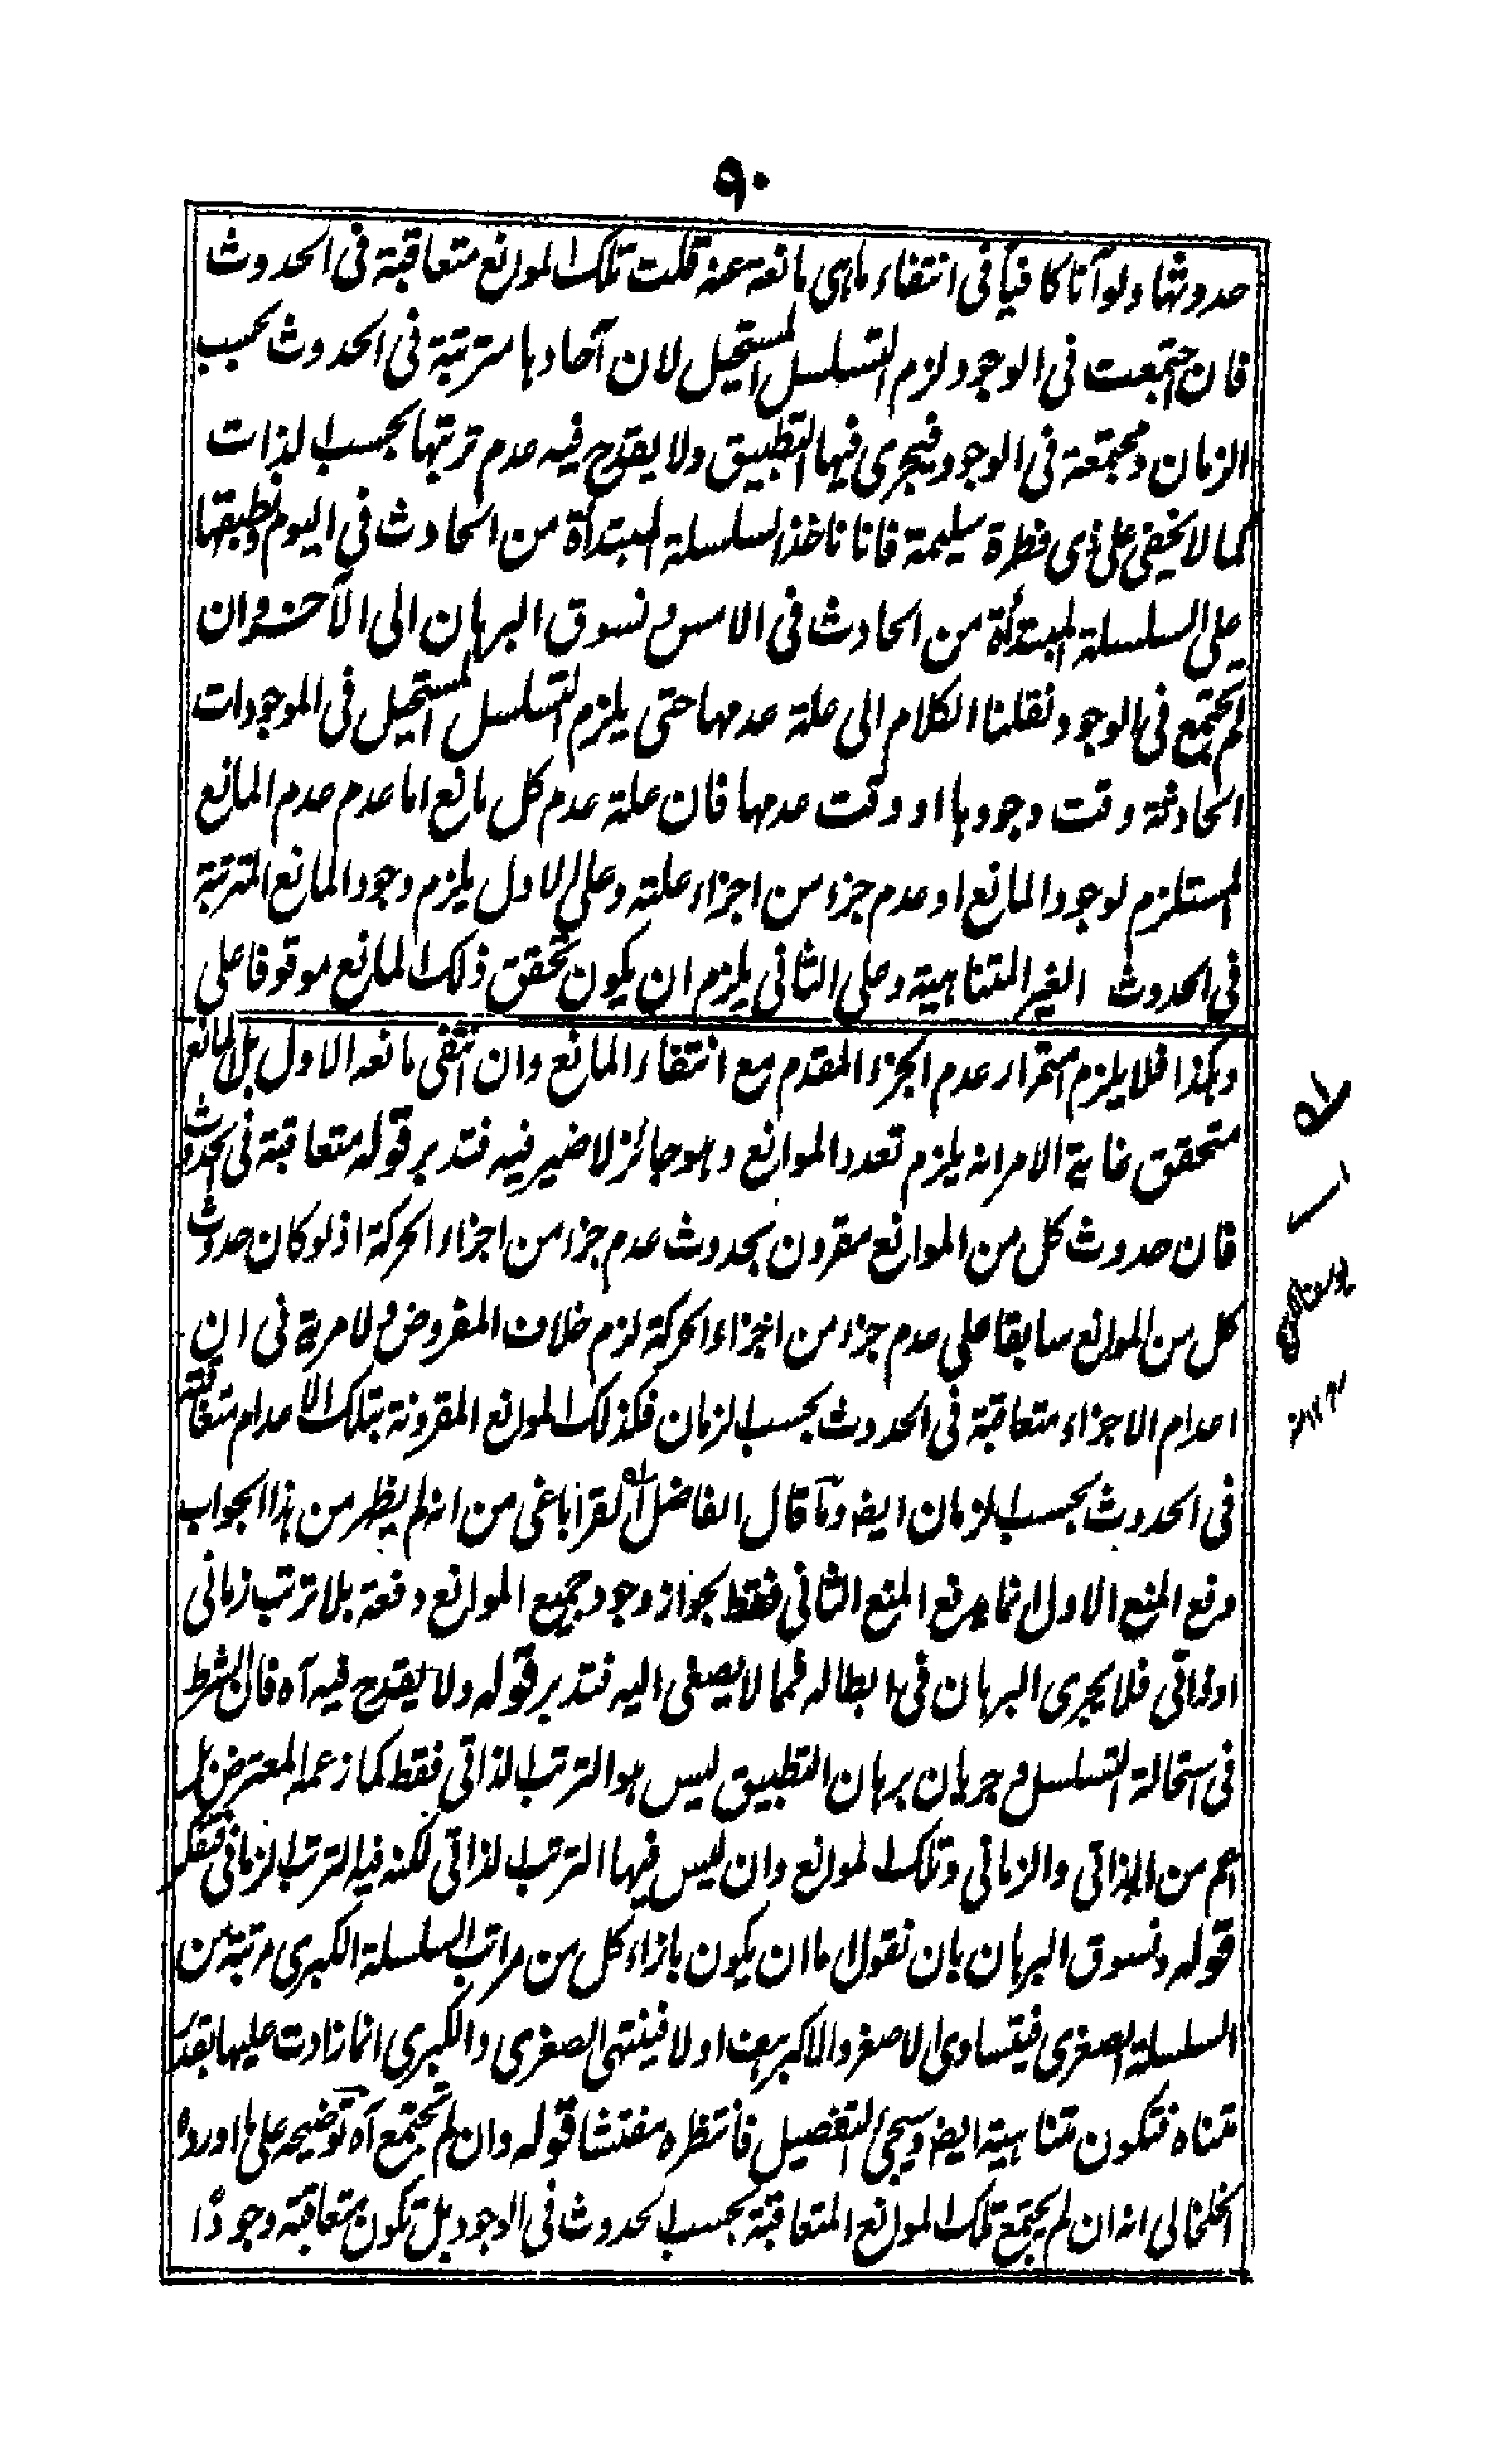 ٩٠
حدوثها ولو آنا كافيا فى انتفاء ماهى مانعة عنه قلت تلك الموانع متعاقبة فى الحدوث
فان اجتمعت فى الوجود لزم التسلسل المستحيل لان آحادها مترتبة فى الحدوث بحسب
الزمان ومجتمعة فى الوجود فيجرى فيها التطبيق ولا يقدح فيه عدم ترتبها بحسب الذات
كما لا يخفى على ذى فطرة سليمة فانا ناخذ السلسلة المبتدأة من الحادث فى اليوم ونطبقها
على السلسلة المبتدأة من الحادث فى الامس ونسوق البرهان الى الآخر وان
لم تجتمع فى الوجود نقلنا الكلام الى علة عدمها حتى يلزم التسلسل المستحيل فى الموجودات
الحادثة وقت وجودها او وقت عدمها فان علة عدم كل مانع اما عدم عدم المانع
المستلزم لوجود المانع او عدم جزء من اجزاء علته وعلى الاول يلزم وجود المانع المترتبة
فى الحدوث الغير المتناهية وعلى الثانى يلزم ان يكون تحقق ذلك المانع موقوفا على
وهكذا فلا يلزم استمرار عدم الجزء المقدم مع انتفاء المانع وان انتفى مانعه الاول بل المانع
متحقق غاية الامر انه يلزم تعدد الموانع وهو جائز لا ضير فيه فتدبر قوله متعاقبة فى الحدوث
فان حدوث كل من الموانع مقرون بحدوث عدم جزء من اجزاء الحركة اذ لو كان حدوث
كل من الموانع سابقا على عدم جزء من اجزاء الحركة لزم خلاف المفروض ولا مرية فى ان
اعدام الاجزاء متعاقبة فى الحدوث بحسب الزمان فكذلك الموانع المقرونة بتلك الاعدام متعاقبة
فى الحدوث بحسب الزمان ايضا وما قال الفاضل القراباغى من انه لم يظهر من هذا الجواب
دفع المنع الاول انما يدفع المنع الثانى فقط بجواز وجود جميع الموانع دفعة بلا ترتب زمانى
او ذاتى فلا يجرى البرهان فى ابطاله فمما لا يصغى اليه فتدبر قوله ولا يقدح فيه آه فان الشرط
فى استحالة التسلسل وجريان برهان التطبيق ليس هو الترتب الذاتى فقط كما زعمه المعترض بل
اعم من الذاتى والزمانى وتلك الموانع وان ليس فيها الترتب الذاتى لكنه فيه الترتب الزمانى فتفكر
قوله ونسوق البرهان بان نقول اما ان يكون بازاء كل من مراتب السلسلة الكبرى مرتبة من
السلسلة الصغرى فيتساوى الاصغر والاكبر هف اولا فينتهى الصغرى والكبرى انما زادت عليها بقدر
متناه فتكون متناهية ايضا وسيجئ التفصيل فانتظره مفتشا قوله وان لم تجتمع آه توضيحه على ما اورده
الخلخالى انه ان لم يجتمع تلك الموانع المتعاقبة بحسب الحدوث فى الوجود بل تكون متعاقبة وجودًا